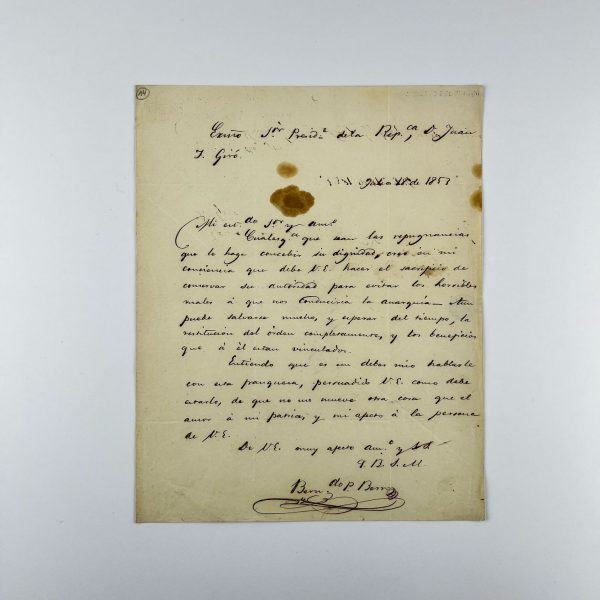 A4
Exmo Sor. Presidte de la Repca, Dn. Juan
F. Giró.
Julio 18 de 1853
Mi estdo Sor. y amo.
Cualesqa que sean las repugnancias
que le haga concebir su dignidad, creo en mi
conciencia que debe V.E. hacer el sacrificio de
conservar su autoridad para evitar los horribles
males á que nos conduciria la anarquia. Aun
puede salvarse mucho, y esperar del tiempo, la
restitucion del órden completamente, y los beneficios
que á él estan vinculados.
Entiendo que es un deber mio hablarle
con esta franqueza, persuadido V.E. como debe
estarlo, de que no me mueve otra cosa que el
amor á mi patria, y mi afecto á la persona
de V.E.
De V.E. muy afecto amo. y S.S.
Q. B. S. M.
Bernardo P. Berro